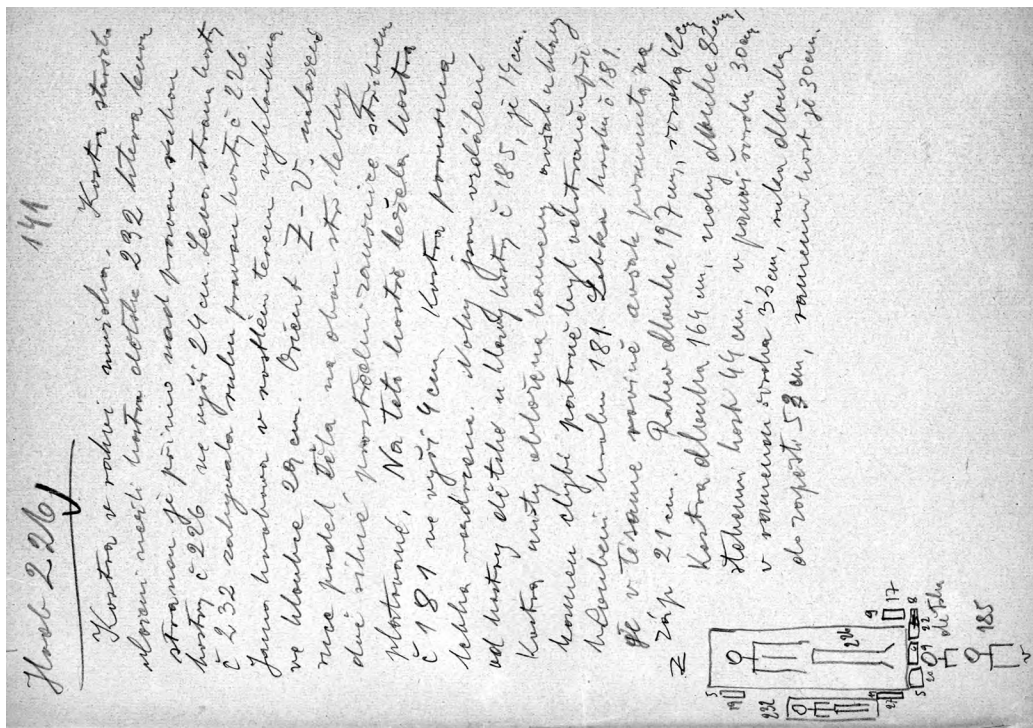 Hrob 226
141
Kostra v rakvi mužská. Kostra starší
uložení nežli kostra dětská 232 kterou levou
stranou je přímo nad pravou rukou
kostry č 226 ve výši 24 cm Levá strana kostry
č 232 zakrývala ruku pravou kostry č 226.
Jáma hrobová v rostlém terenu vyhloubena
ve hloubce 29 cm. Orient Z-V. uložení
ruce podél těla na obou str. lebky
dvě silné postříbřené
plátované. Na této kostře ležela kostra
č 181 ve výši 4 cm Kostra porušena
lebka rozdrcena. Nohy jsou vzdáleni
od kostry dětské u hlavy kostry č 185, je 14 cm.
Kostra místy obložena kameny, avšak u hlavy
kamen chybí patrně byl odstraněn při
hloubení hrobu 181. Lebka hrobu č 181.
je v téžame rovině avšak posunuta na
záp 21 cm. Rakev dlouhá 197 cm, široká 42 cm
Kostra dlouhá 164 cm, nohy dlouhé 82 cm
stehenní kost 44 cm, v pánvi široká 30 cm,
v ramenou široká 33 cm, ruka dlouhá
od rozpětí 53 cm, ramenní kost je 30 cm.
Z
S
19
232
226
9
17
11
27
S
20
9
22
8
dítka
185
V